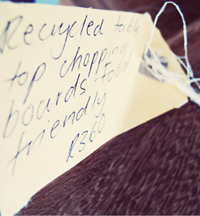 Recycled table
top chopping
boards food
friendly
R360